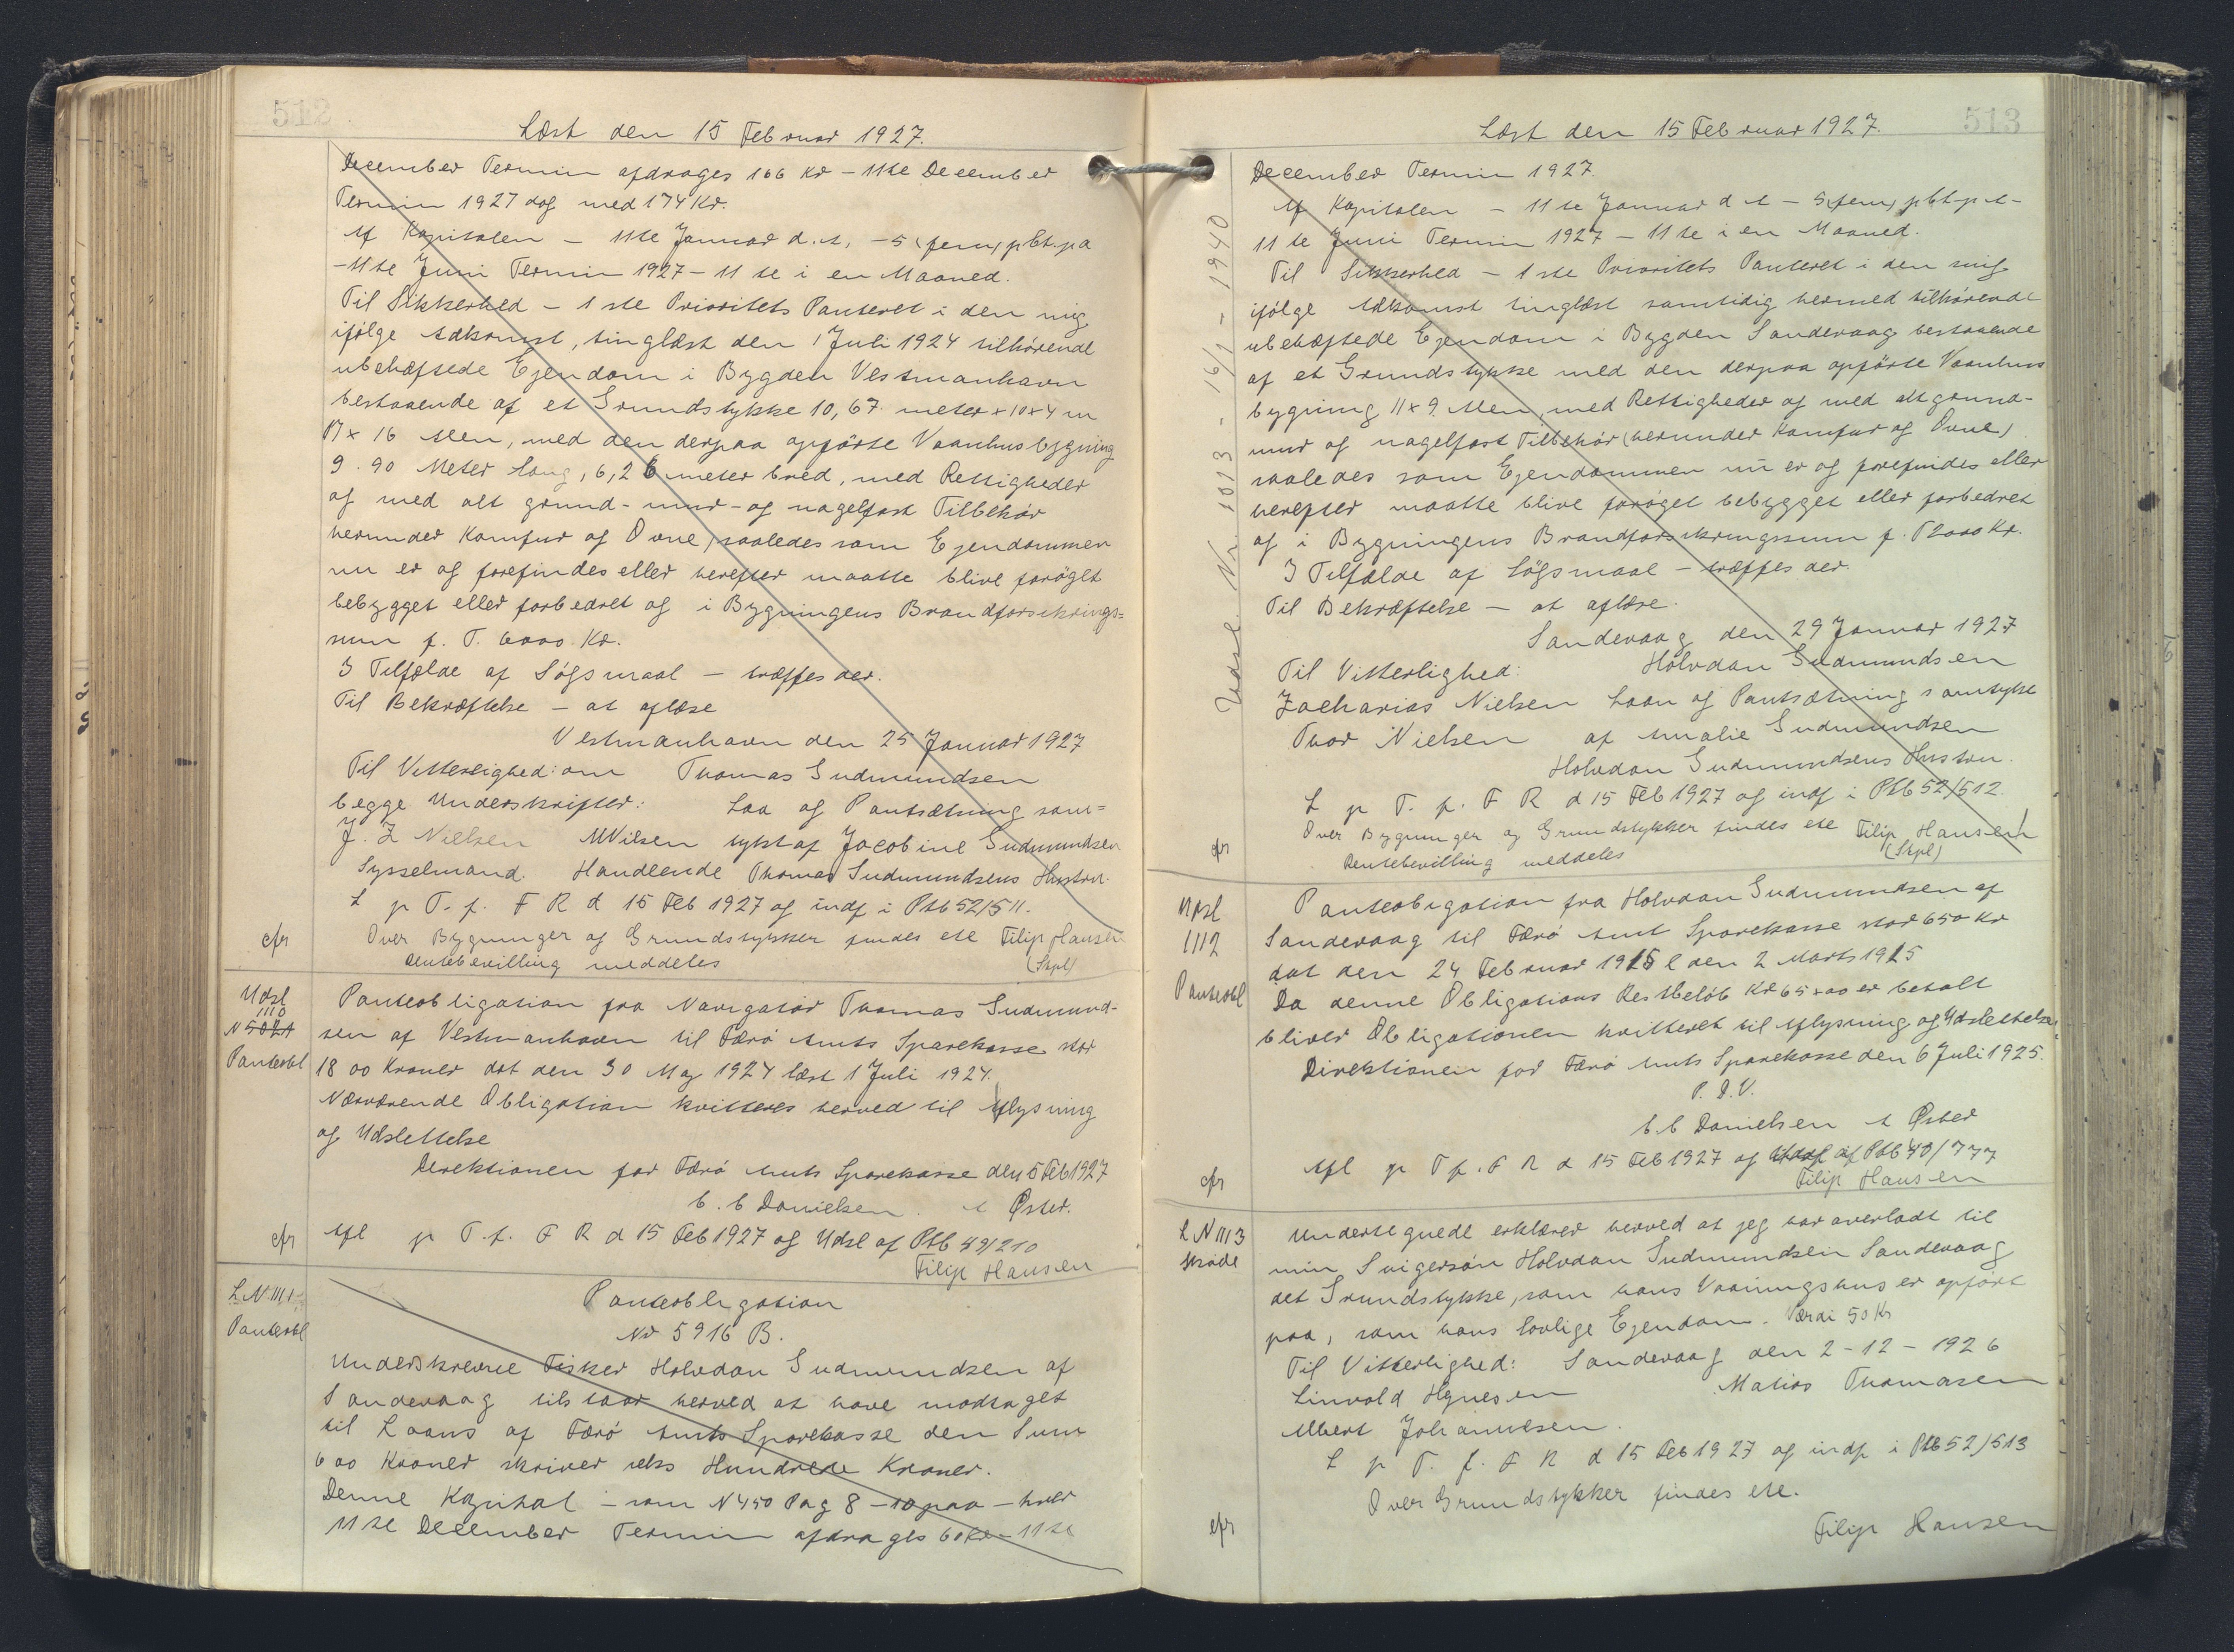 512
Læst den 15 Februar 1927.
December Termin afdrages 166 Kr - 11te December
Termin 1927 dog med 174 Kr.
Af Kapitalen - 11te Januar d. A. - 5 (fem) pCt. p a
- 11te Juni Termin 1927 - 11te i en Maaned.
Til Sikkerhed - 1ste Prioritets Panteret i den mig
ifølge Adkomst, tinglæst den 1 Juli 1924 tilhørende
ubehæftede Ejendom i Bygden Vestmanhavn
bestaaende af et Grundstykke 10,67 meter + 10 + 4 m
17 x 16 Alen, med den derpaa opførte Vaanhusbygning
9.90 Meter lang, 6,26 meter bred, med Rettigheder
og med alt grund- mur- og nagelfast Tilbehør
herunder Komfur og Ovne) saaledes som Ejendommen
nu er og forefindes eller herefter maatte blive forøget
bebygget eller forbedret og i Bygningens Brandforsikrings=
sum f. T. 6000 Kr.
I Tilfælde af Søgsmaal - træffes der.
Til Bekræftelse - at aflæse
Vestmanhavn den 25 Januar 1927
Til Vitterlighed om Thomas Gudmundsen
begge Underskrifter: Laa og Pantsætning sam=
J. Z Nielsen M Nilsen tykt af Jacobine Gudmundsen
Sysselmand. Handlende Thomas Gudmundsens Hustru.
L p T. f. F R d 15 Feb 1927 og indf i Ptb 52/511.
cfr Over Bygninger og Grundstykker findes ete Filip Hansen
Rentebevilling meddeles (Stpl)
Udsl 1110 N 5021 Panteobl
Panteobligation fra Navigatør Thomas Gudmund-
sen af Vestmanhavn til Færø Amts Sparekasse stor
1800 Kroner dat den 30 Maj 1924 læst 1 Juli 1924.
Nærværende Obligation kvitteres herved til Aflysning
og Udslettelse
Direktionen for Færø Amts Sparekasse den 5 Feb 1927
C. C Danielsen. A Øster.
cfr Afl p T. f. F R d 15 Feb 1927 og Udsl af Ptb 49/210
Filip Hansen
L N 1111 Panteobl
Panteobligation
Nr 5916 B.
Underskrevne Fisker Halvdan Gudmundsen af
Sandevaag tilstaar herved at have modtaget
til Laans af Færø Amts Sparekasse den Sum
600 Kroner skriver seks Hundrede Kroner.
Denne Kapital - som N 450 Pag 8 - 10 paa - hver
11te December Termin afdrages 60 Kr - 11te
513
Læst den 15 Februar 1927.
Udsl. Nr. 1013 - 16/1 - 1940
December Termin 1927.
Af Kapitalen - 11te Januar d A - 5 (fem) pCt p A -
11te Juni Termin 1927 - 11te i en Maaned.
Til Sikkerhed - 1ste Prioritets Panteret i den mig
ifølge Adkomst tinglæst samtidig hermed tilhørende
ubehæftede Ejendom i Bygden Sandevaag bestaaende
af et Grundstykke med den derpaa opførte Vaanhus
bygning 11 x 9 Alen, med Rettigheder og med alt grund-
mur og nagelfast Tilbehør (herunder Komfur og Ovne)
saaledes som Ejendommen nu er og forefindes eller
herefter maatte blive forøget bebygget eller forbedret
og i Bygningens Brandforsikringssum f. T 2000 Kr.
I Tilfælde af Søgsmaal - træffes der.
Til Bekræftelse - at aflæse.
Sandevaag den 29 Januar 1927
Til Vitterlighed: Halvdan Gudmundsen
Zacharias Nielsen Laan og Pantsætning samtykt
Thor Nielsen af Amalie Gudmundsen
Halvdan Gudmundsens Hustru.
L p T. f. F R d 15 Feb 1927 og indf i Ptb 52/512.
cfr Over Bygninger og Grundstykker findes ete Filip Hansen
Rentebevilling meddeles (Stpl)
Udsl 1112 Panteobl
Panteobligation fra Halvdan Gudmundsen af
Sandevaag til Færø Amt Sparekasse stor 650 Kr
dat den 24 Februar 1915 l den 2 Marts 1915
Da denne Obligations Restbeløb Kr 65+00 er betalt
bliver Obligationen kvitteret til Aflysning og Udslettelse
Direktionen for Færø Amts Sparekasse den 6 Juli 1925.
P. D. V.
C. C Danielsen A Øster
cfr Afl p T f. F R d 15 Feb 1927 og Udsl af Ptb 40/777
Filip Hansen
L N 1113 Skøde
Undertegnede erklærer herved at jeg har overladt til
min Svigersøn Halvdan Gudmundsen Sandevaag
det Grundstykke, som hans Vaaningshus er opført
paa, som hans lovlige Ejendom. Værdi 50 Kr
Til Vitterlighed: Sandevaag den 2 - 12 - 1926
Linvald Hynesen Matias Thomasen
Albert Johannesen.
L p T. f. F R d 15 Feb 1927 og indf i Ptb 52/513
Over Grundstykker findes ete.
cfr Filip Hansen